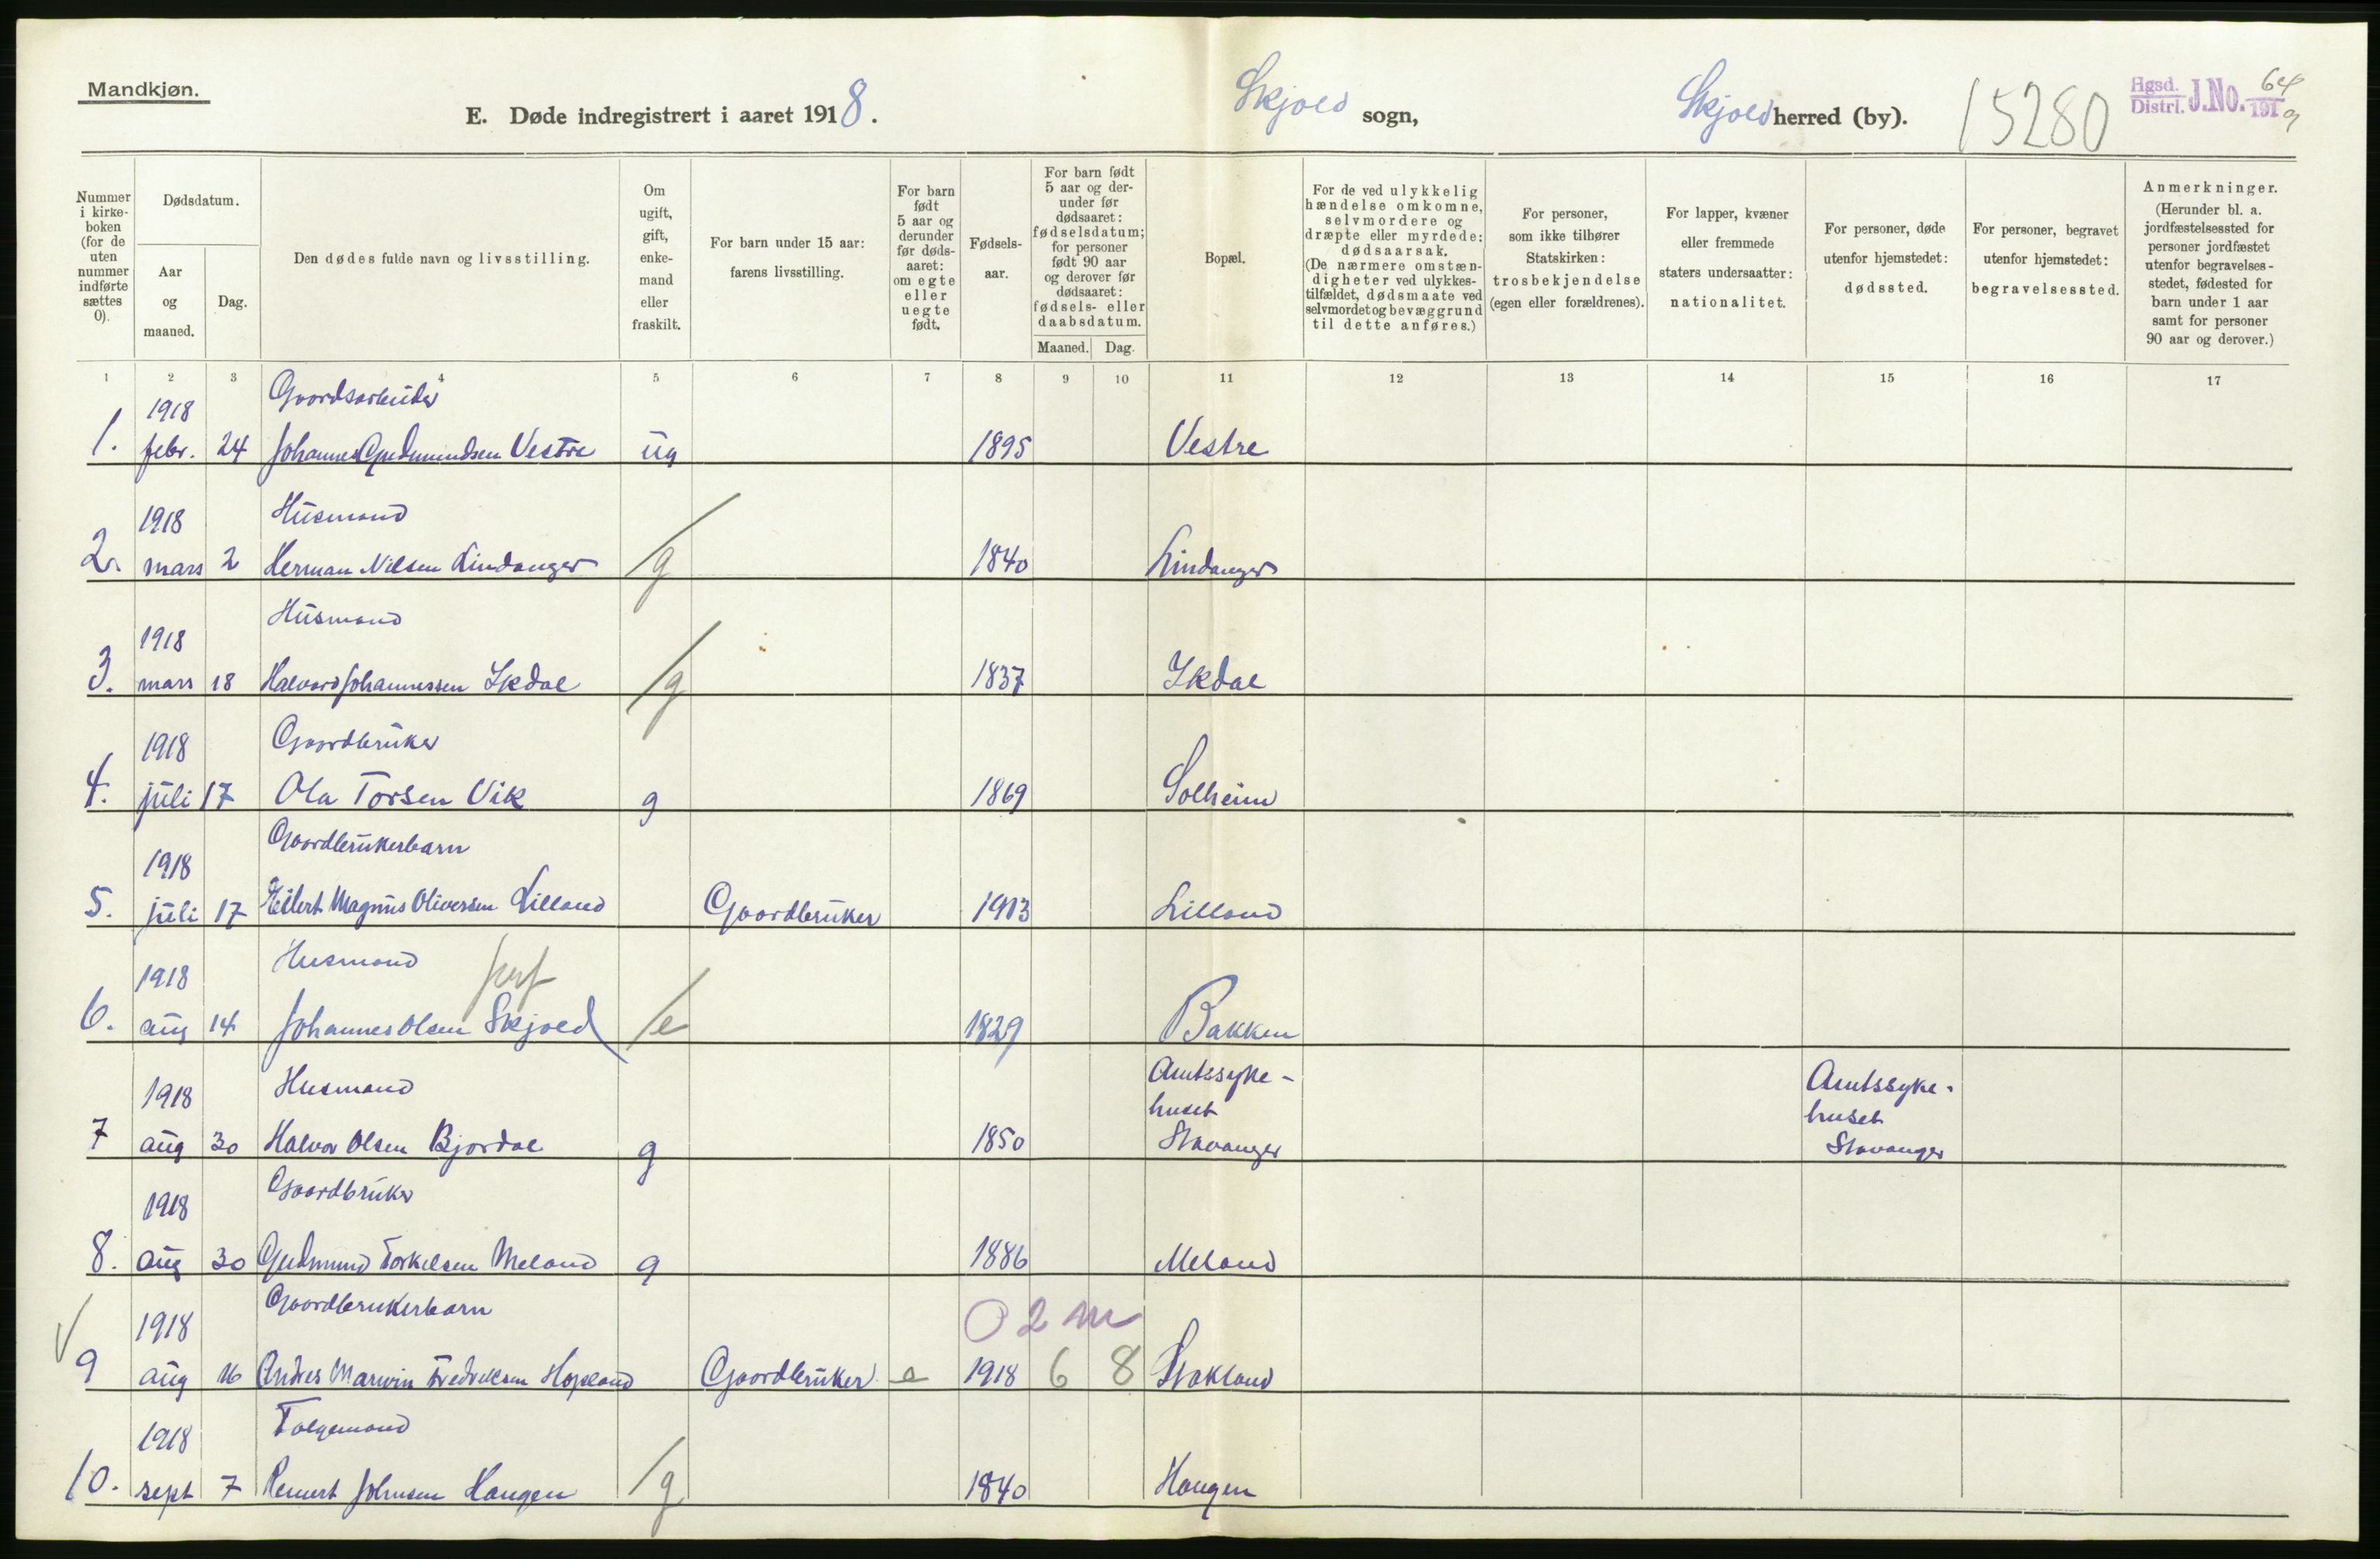 Mandkjøn.
E. Døde indregistrert i aaret 1918.
Skjold sogn,
Skjold herred (by).
15280
Hgsd. Distri. J.No. 64 1919
Nummer i kirkeboken (for de uten nummer indførte sættes 0).
Dødsdatum.
Aar og maaned.
Dag.
Den dødes fulde navn og livsstilling.
Om ugift, gift, enkemand eller fraskilt.
For barn under 15 aar: farens livsstilling.
For barn født 5 aar og derunder før dødsaaret: om egte eller uegte født.
Fødselsaar.
For barn født 5 aar og derunder før dødsaaret: fødselsdatum; for personer født 90 aar og derover før dødsaaret: fødsels- eller daabsdatum.
Maaned. Dag.
Bopæl.
For de ved ulykkelig hændelse omkomne, selvmordere og dræpte eller myrdede: dødsaarsak. (De nærmere omstændigheter ved ulykkestilfældet, dødsmaate ved selvmordet og bevæggrund til dette anføres.)
For personer, som ikke tilhører Statskirken: trosbekjendelse (egen eller forældrenes).
For lapper, kvæner eller fremmede staters undersaatter: nationalitet.
For personer, døde utenfor hjemstedet: dødssted.
For personer, begravet utenfor hjemstedet: begravelsessted.
Anmerkninger. (Herunder bl. a. jordfæstelsessted for personer jordfæstet utenfor begravelsesstedet, fødested for barn under 1 aar samt for personer 90 aar og derover.)
1 2 3 4 5 6 7 8 9 10 11 12 13 14 15 16 17
1918 Gaardsarbeider
1. febr. 24 Johannes Gudmundsen Vestre ug 1895 Vestre
1918 Husmand
2. mars 2 Herman Nilsen Lindanger g 1840 Lindanger
1918 Husmand
3. mars 18 Halvard Johannessen Ikdal g 1837 Ikdal
1918 Gaardbruker
4. juli 17 Ola Torsen Vik g 1869 Solheim
1918 Gaardbrukerbarn
5. juli 17 Eilert Magnus Oliversen Lilland Gaardbruker 1903 Lilland
1918 Husmand
6. aug 14 Johannes Olsen Skjold e 1829 Bakken
1918 Husmand Amtssyke- Amtssyke-
huset huset
7 aug 30 Halvor Olsen Bjordal g 1850 Stavanger Stavanger
1918 Gaardbruker
8. aug 30 Gudmund Torkelsen Meland g 1886 Meland
1918 Gaardbrukerbarn 0 2 m
9 aug 16 Andres Marwin Fredriksen Hopland Gaardbruker e 1918 6 8 Stakland
1918 Folgemand
10. sept 7 Reinert Johnsen Haugen g 1840 Haugen